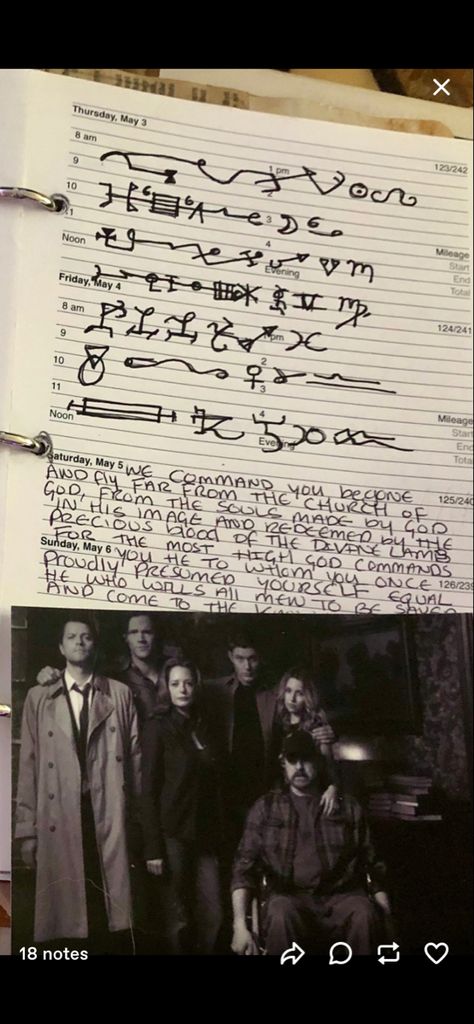 Thursday, May 3
123/242
8 am
1 pm
9
2
10
3
11
Mileage
Noon
4
Start
Evening
End
Total
Friday, May 4
124/241
8 am
1 pm
9
10
2
3
11
Mileage
Noon
4
Start
Evening
End
Total
Saturday, May 5
125/240
WE COMMAND YOU BEGONE
AND FLY FAR FROM THE CHURCH OF
GOD, FROM THE SOULS MADE BY GOD
IN HIS IMAGE AND REDEEMED BY THE
PRECIOUS blood OF THE DEVINE LAMB
FOR THE MOST HIGH GOD COMMANDS
Sunday, May 6
126/239
YOU HE TO WHOM YOU ONCE
PROUDLY PRESUMED YOURSELF EQUAL
HE WHO WILLS All MEN TO BE SAVED
AND COME TO THE
18 notes